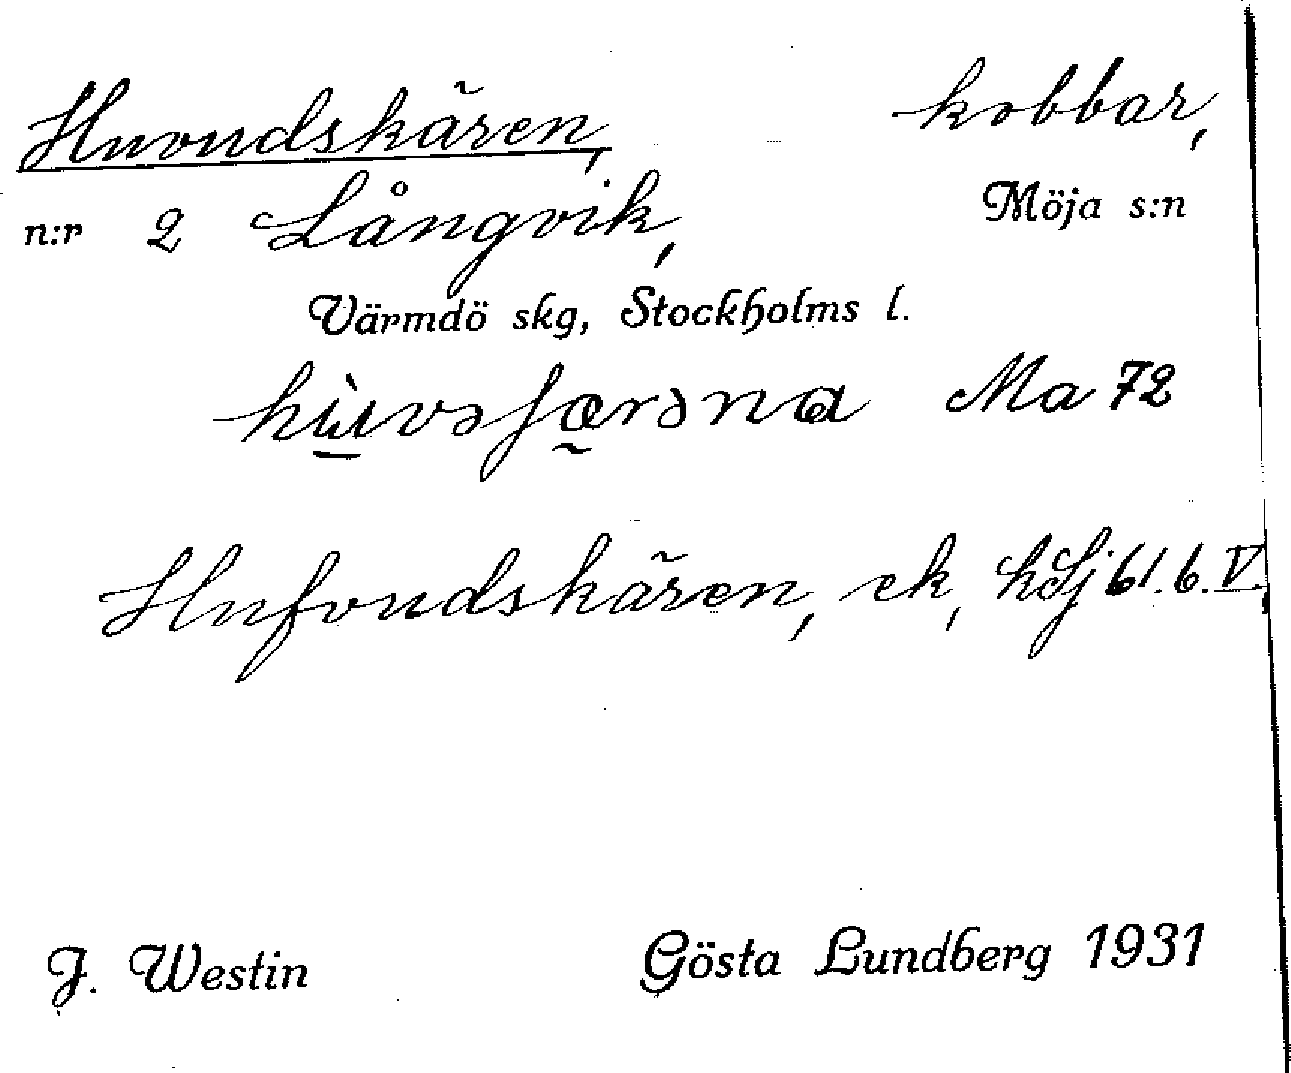 Huvudskären, kobbar,
n:r 2 Långvik, Möja s:n
Värmdö skg, Stockholms l.
Ma 72
Hufvudskären, ek, hSj 61.6.V.
J. Westin Gösta Lundberg 1931